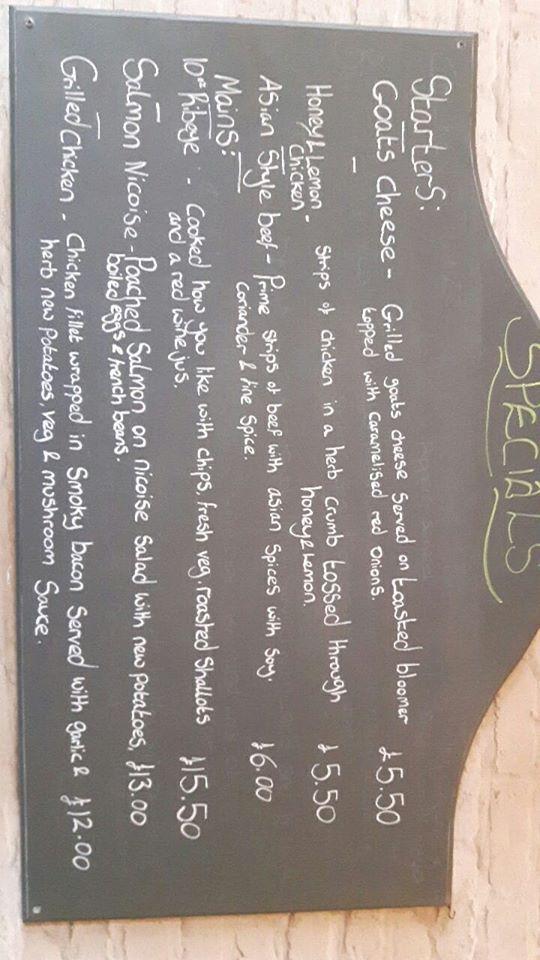 SPECIALS
Starters:
Goats Cheese - Grilled goats cheese served on toasted bloomer £5.50
topped with caramelised red onions.
Honey & Lemon - Strips of chicken in a herb crumb tossed through £5.50
Chicken honey & lemon.
Asian Style beef - Prime strips of beef with asian spices with soy. £6.00
coriander & fine spice.
Mains:
10oz Ribeye - Cooked how you like with chips, fresh veg, roasted shallots £15.50
and a red wine jus.
Salmon Nicoise - Poached Salmon on nicoise salad with new potatoes, £13.00
boiled eggs & french beans.
Grilled Chicken - Chicken fillet wrapped in smoky bacon served with garlic & £12.00
herb new potatoes, veg & mushroom sauce.